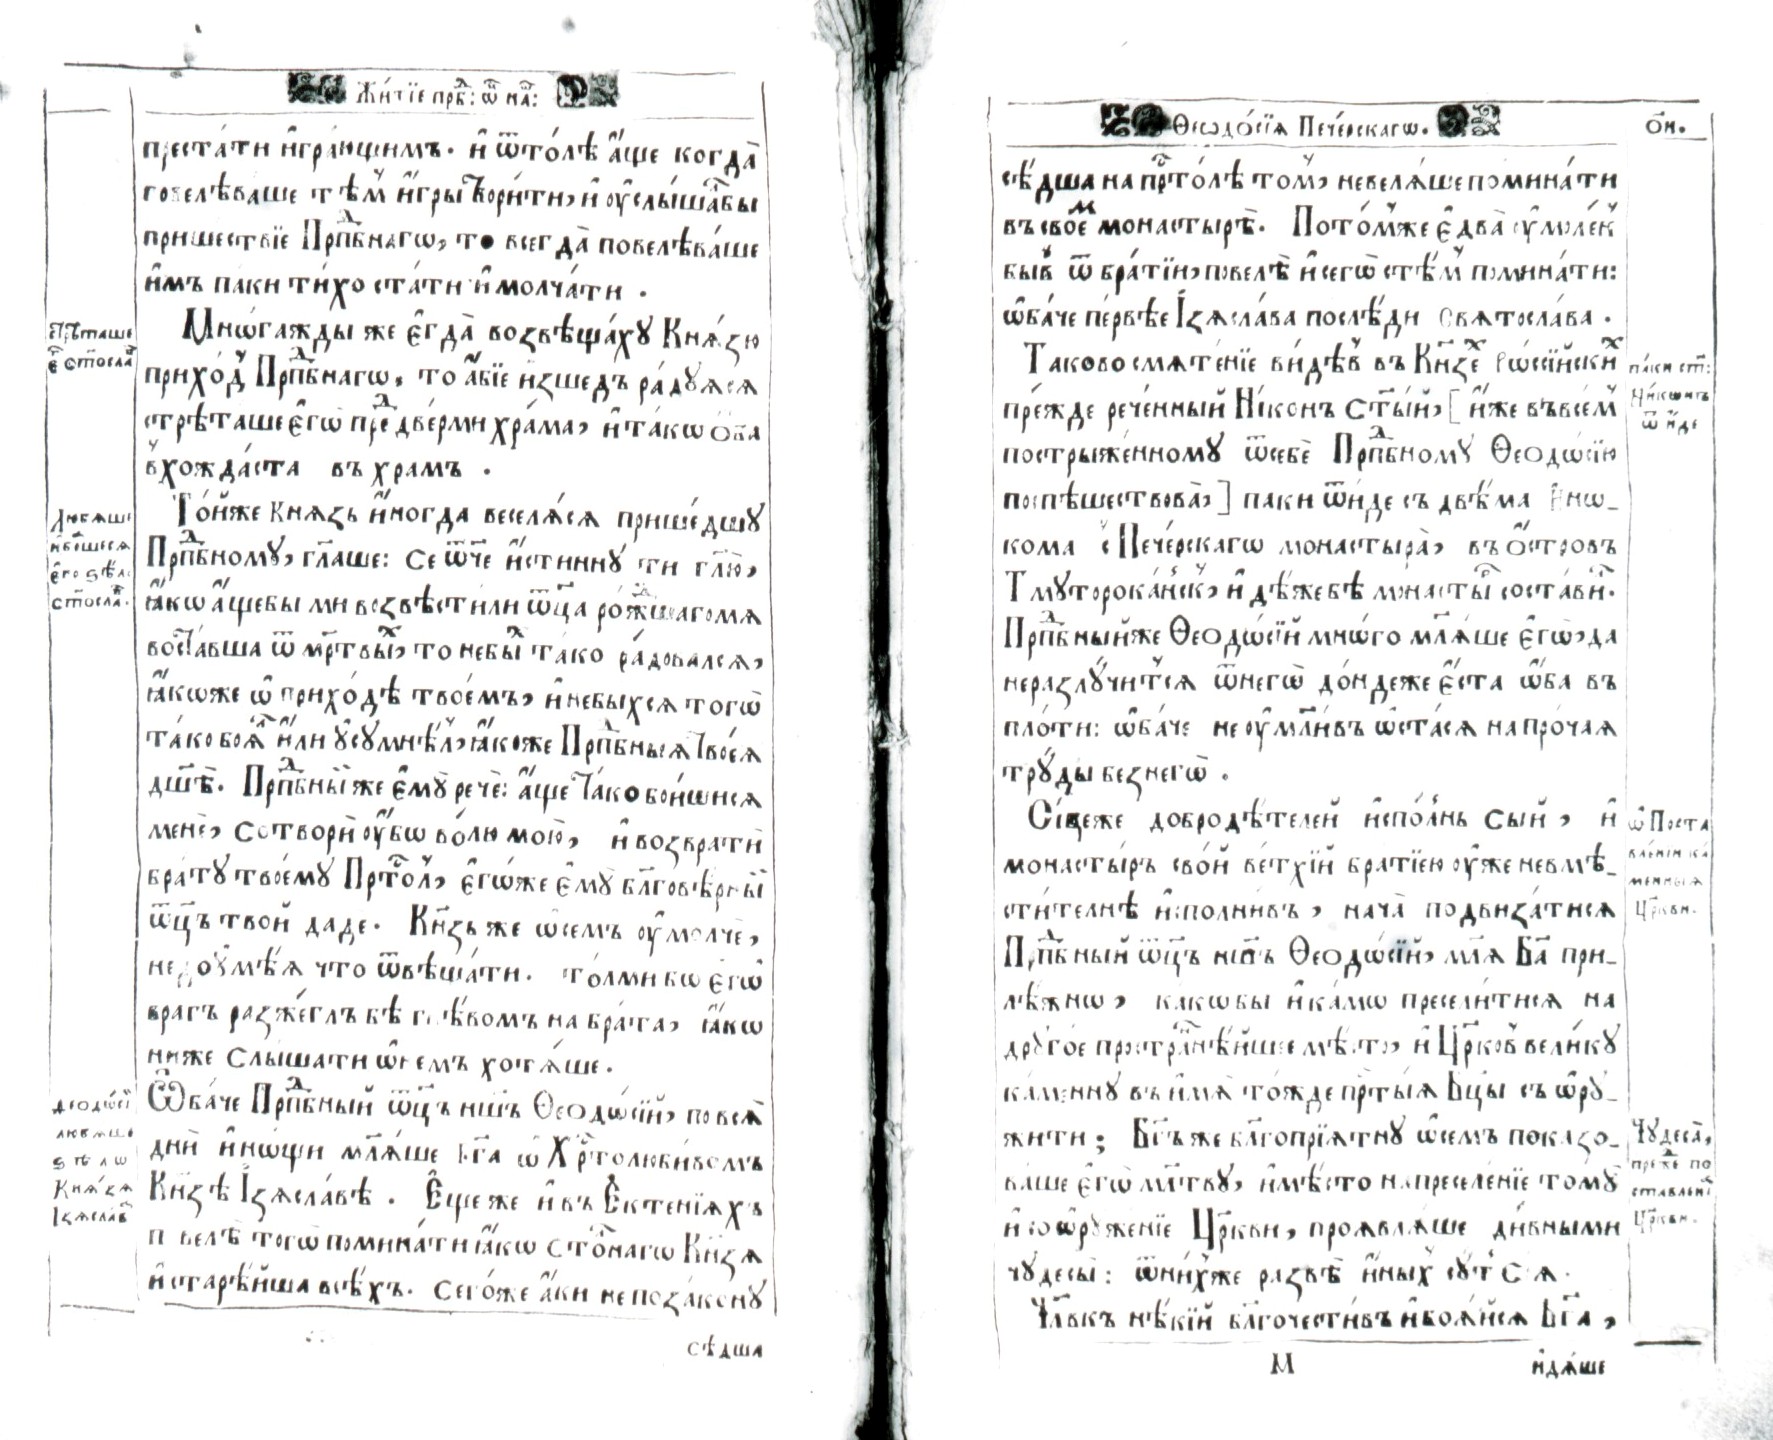 Жи́тїе прⷣб: ѿ на́:
преста́ти и҆гра́ющимъ. и҆ ѿто́лѣ а҆́ще когда̀
повелѣва́ше тѣ́м и҆́гры твори́ти, и҆ ѹ҆слы́шавы
прише́ствїе Прпⷣбнагѡ, то всегда̀ повелѣва́ше
и҆̀мъ па́ки ти́хо ста́ти и҆ молча́ти .
Мно́гажды же є҆гда̀ возвѣща́хꙋ Кнѧ́зю
прихо́д Прпⷣбнагѡ, то а҆́бїе и҆зше́дъ ра́дꙋѧсѧ
стрѣ́таше є҆го̀ преⷣ две́рми хра́ма, и҆ та́кѡ ѻ҆́ба
вхожда́ста въ храмъ .
То́йже кнѧзь и҆ногда веселѧ́сѧ прише́дшꙋ
Прпⷣбномꙋ, гл҃аше: Се ѿч҃е и҆́стиннꙋ ти гл҃ю,
ꙗ҆́кѡ а҆́щебы ми возвѣсти́ли ѿц҃а ро́ждшагомѧ
воста́вша ѿ мр҃твыⷯ, то небыⷯ та́ко ра́довалсѧ,
ꙗ҆́кѡже ѡ҆ прихо́дѣ твое́мъ, и҆ небы́хсѧ тогѡ̀
та́ко боѧ́л и҆́ли ѹ҆сꙋмнѣ́л, ꙗ҆́коже Прпⷣбныѧ твоеѧ̀
дш҃ѐ. Прпⷣбный же є҆мꙋ̀ речѐ: а҆́ще та́ко бои́шисѧ
менѐ, сотворѝ ѹ҆́бѡ во́лю мою̀, и҆ возвратѝ
бра́тꙋ твоемꙋ̀ Прⷭ҇то́л, є҆го́же є҆мꙋ̀ бл҃говѣ́рный
ѿц҃ъ твой даде. Кн҃зь же ѡ҆ се́мъ ѹ҆молчѐ,
недоꙋмѣ́ѧ что ѿвѣща́ти. то́лми бо є҆го̀
врагъ разже́глъ бѣ гнѣ́вомъ на бра́та, ꙗ҆́кѡ
ниже слы́шати ѡ҆ не́мъ хотѧ́ше.
Ѻ҆ба́че Прпⷣбный ѿц҃ъ нш҃ъ Ѳеодѡ́сїй, по всѧ̀
дни̑ и҆ но́щи млѧ́ше Бг҃а ѡ҆ Хрⷭ҇толюби́вомъ
Кн҃зѣ І҆зѧсла́вѣ . Е҆ще же и҆ въ Е҆ктенїѧхъ
повелѣ̀ того̀ помина́ти ꙗ҆́кѡ ст҃о́лнагѡ Кн҃зѧ
и҆ старѣ́йша всѣ́хъ. Сего́же а҆́ки не по зако́нꙋ
сѣ́дша
Стрѣ́таше
є҆̀ ст҃осла́в
Любѧ́ше
и҆ боѧ́шесѧ
є҆го ѕѣло
ст҃осла́в.
Ѳеодѡ́сїй
любѧ́ше
ѕѣлѡ
Кнѧ́зѧ
І҆зѧсла́в
Ѳеодо́сїѧ Пече́рскагѡ.
ѻ҃и.
сѣ́дша на прⷭ҇то́лѣ то́м, невелѧ́ше помина́ти
въ своеⷨ монастырѣ̀. Пото́мже є҆два̀ ѹ҆моле́н
быв ѿ бра́тїи, повелѣ̀ и҆ сего̀ с тѣ́м помина́ти:
ѻ҆ба́че пе́рвѣе І҆зѧсла́ва послѣди Свѧтосла́ва .
Таково смѧте́нїе ви́дѣв въ Кн҃зеⷯ Рѡссїйскиⷯ
пре́жде рече́нный Ні́конъ Ст҃ый, [ и҆́же въ всем
постриже́нномꙋ ѿсебѐ Прпⷣбномꙋ Ѳеодѡ́сїю
поспѣшествова̀, ] паки ѿи́де съ двѣ́ма И҆но-
кома с Пече́рскагѡ монастырѧ̀, въ ѻ҆́стровъ
Тмꙋторока́нск, и҆дѣ́жебѣ монасты́р соста́вил.
Прпⷣбныйже Ѳеодѡ́сїй мно́го млѧ́ше є҆го̀, да
неразлꙋчи́тсѧ ѿнегѡ̀ до́ндеже є҆́ста ѻ҆́ба въ
пло́ти: ѻ҆ба́че не ѹ҆мли́въ ѡ҆ста́сѧ на про́чаѧ
трꙋды̀ безнего̀ .
Си́цеже добродѣ́телей и҆спо́лнь сый, и҆
монасты́ръ сво́й ве́тхїй бра́тїею ѹ҆же невмѣ-
сти́телнѣ и҆спо́лнивъ, нача̀ подвиза́тисѧ
Прпⷣбный ѿц҃ъ нш҃ъ Ѳеодѡ́сїй, млѧ̀ Бг҃а при-
лѣ́жнѡ, ка́кѡбы и҆ ка́мѡ пресели́тисѧ на
дрꙋго́е простра́ннѣйшее мѣ́сто, и҆ Цр҃ковь вели́кꙋ
ка́меннꙋ въ и҆́мѧ то́жде прⷭ҇ты́ѧ Бц҃ы съѡ҆рꙋ-
жи́ти; Бг҃ъ же бл҃гопрїѧ́тнꙋ ѡ҆ се́мъ показо-
ва́ше є҆го̀ мл҃твꙋ, и҆ мѣ́сто на преселе́нїе томꙋ̀
и҆ соѡ҆рꙋже́нїе Цр҃кви, проѧвлѧ́ше ди́вными
чꙋдесы̀: ѿни́хже ра́звѣ и҆́ных сꙋ́т сїѧ̀.
Чл҃вкъ нѣ́кїй бл҃гочести́въ и҆ боѧ́йсѧ Бг҃а,
М и҆дѧ́ше
па́ки ст҃:
Ні́конъ
ѿи́де
ѡ҆ Поста
вле́нїи ка́
менныѧ
Цр҃кви.
Чꙋдеса̀,
преⷤ по
ставлени
Цр҃кви.